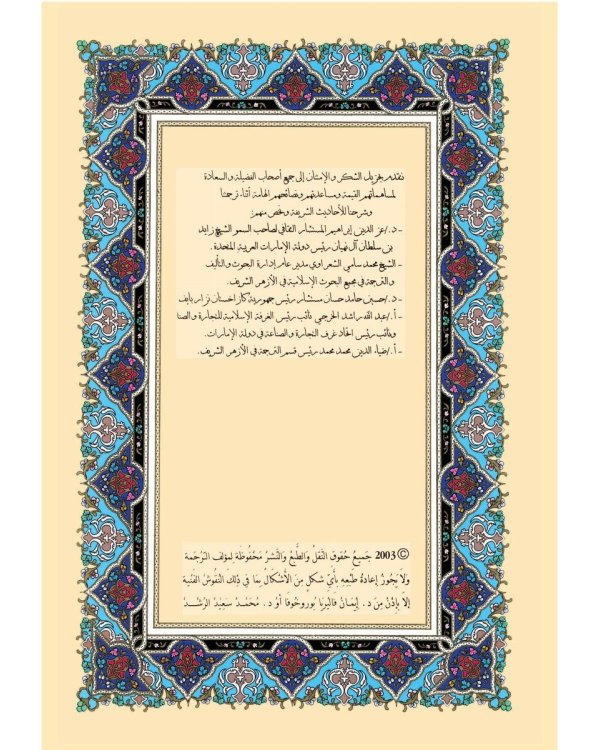 نتقدم بجزيل الشكر والإمتنان إلى جميع أصحاب الفضيلة والسعادة
لمساهماتهم القيمة ومساعدتهم ونصائحهم الهامة أثناء ترجمتنا
وشرحنا للأحاديث الشريفة ونخص منهم:
- د./عز الدين إبراهيم المستشار الثقافي لصاحب السمو الشيخ زايد
بن سلطان آل نهيان رئيس دولة الإمارات العربية المتحدة.
- الشيخ محمد سامي الشعراوي مدير عام إدارة البحوث والتأليف
والترجمة في مجمع البحوث الإسلامية في الأزهر الشريف.
- د./حسين حامد حسان مستشار رئيس جمهورية كازاخستان نزار بايف
- أ./عبد الله راشد الخرجي نائب رئيس الغرفة الإسلامية للتجارة والصنا
ونائب رئيس اتحاد غرف التجارة والصناعة في دولة الإمارات.
- أ./ضياء الدين محمد محمد رئيس قسم الترجمة في الأزهر الشريف.
© 2003 جَميعُ حُقوق النَّقلُ وَالطَّبعُ وَالنَّشرُ مَحْفُوظَة لِمؤَلف التَرْجَمة
وَلاَ يَجُوزُ إعَادةُ طَبْعِهِ بِأيّ شَكل مِنَ الأَشْكَال بِمَا في ذلِكَ النُقُوشُ الفَنيَة
إلا بِإذْن مِنْ د. إيمَانُ فَاليريَا بُورُوخُوفَا أوْ د. مُحَمَدْ سَعِيدْ الرُشْد